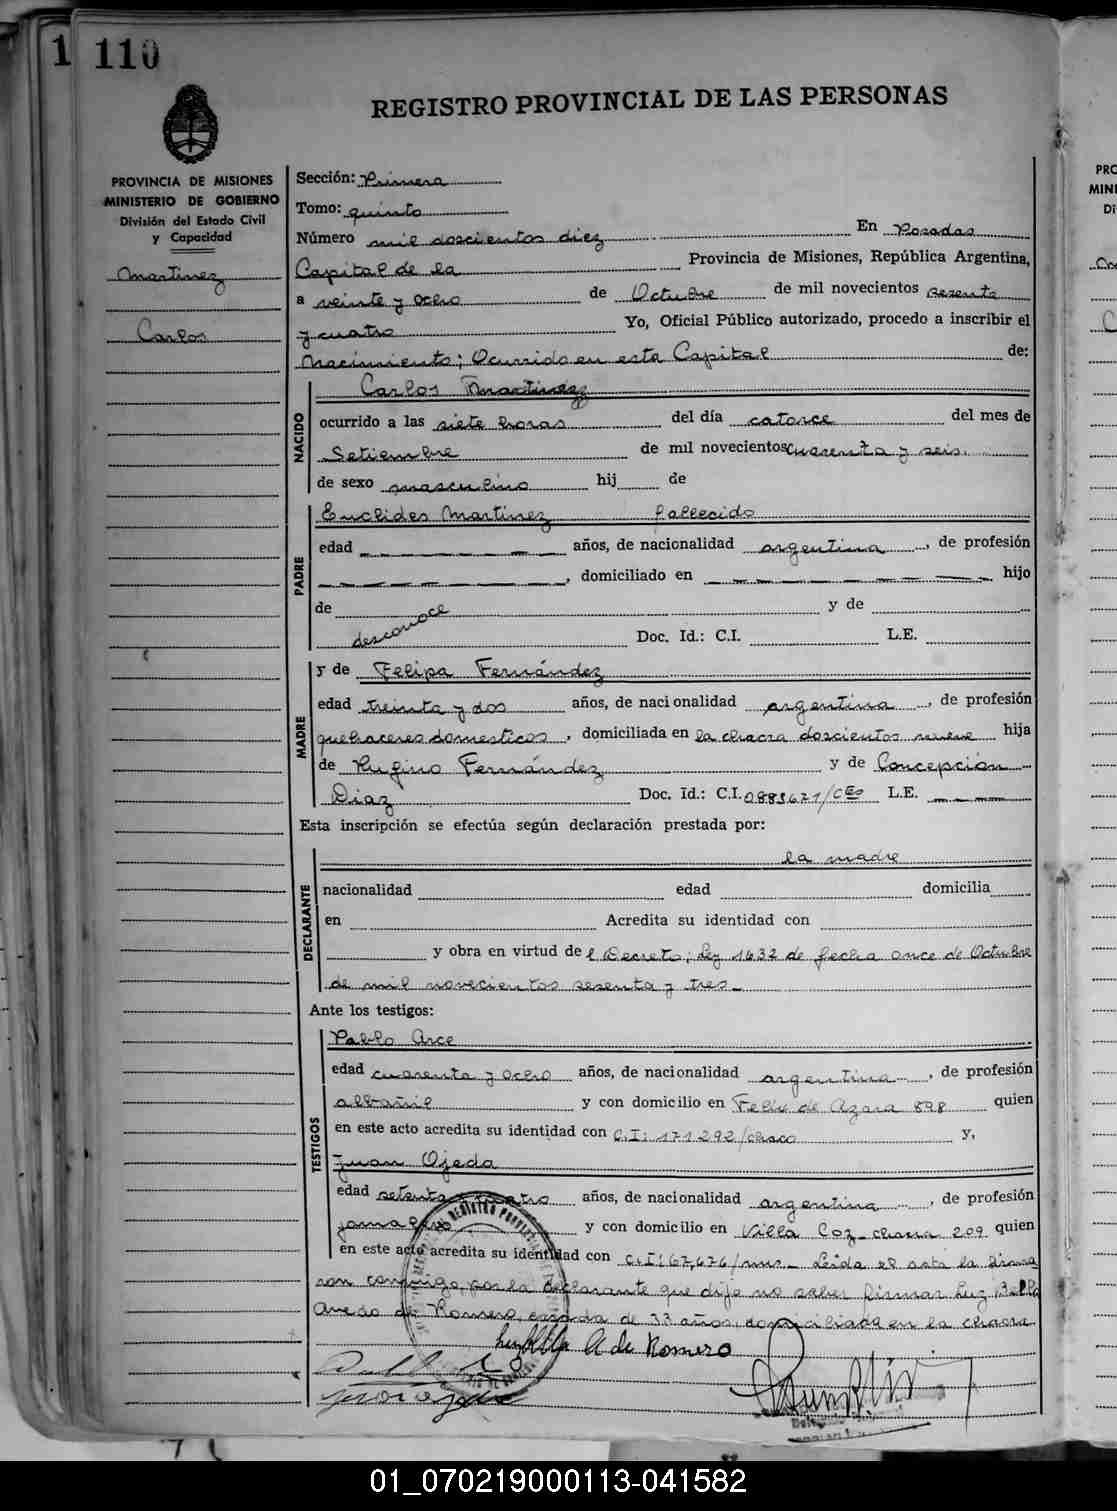 1 110
REGISTRO PROVINCIAL DE LAS PERSONAS
PROVINCIA DE MISIONES
MINISTERIO DE GOBIERNO
División del Estado Civil
y Capacidad
Martinez
Carlos
Sección: Primera
Tomo: quinto
Número mil doscientos diez En Posadas
Capital de la Provincia de Misiones, República Argentina,
a veinte y ocho de Octubre de mil novecientos sesenta
y cuatro Yo, Oficial Público autorizado, procedo a inscribir el
Nacimiento; Ocurrido en esta Capital de:
NACIDO
Carlos Martinez
ocurrido a las siete horas del día catorce del mes de
Setiembre de mil novecientos cuarenta y seis.
de sexo masculino hij de
PADRE
Euclides Martinez fallecido
edad años, de nacionalidad argentina, de profesión
, domiciliado en hijo
de desconoce y de
Doc. Id.: C.I. L.E.
MADRE
y de Felipa Fernández
edad treinta y dos años, de nacionalidad argentina, de profesión
quehaceres domesticos, domiciliada en la chacra doscientos nueve hija
de Rufino Fernández y de Concepción
Diaz Doc. Id.: C.I. L.E.
Esta inscripción se efectúa según declaración prestada por:
DECLARANTE
la madre
nacionalidad edad domicilia
en Acredita su identidad con
y obra en virtud del Decreto; Ley 1632 de fecha once de Octubre
de mil novecientos sesenta y tres_
Ante los testigos:
TESTIGOS
Pablo Arce
edad cuarenta y ocho años, de nacionalidad argentina, de profesión
albañil y con domicilio en Felix de Azara 898 quien
en este acto acredita su identidad con C.I: 171292/chaco y,
Juan Ojeda
edad setenta y cuatro años, de nacionalidad argentina, de profesión
y con domicilio en Villa Coz_chacra 209 quien
en este acto acredita su identidad con C.I: 67,676/mns_ Leida el acta la firma
ron conmigo, por la declarante que dijo no saber firmar Luz Bella
de Romero, casada de 33 años, domiciliada en la chacra
A de Romero
01_070219000113-041582